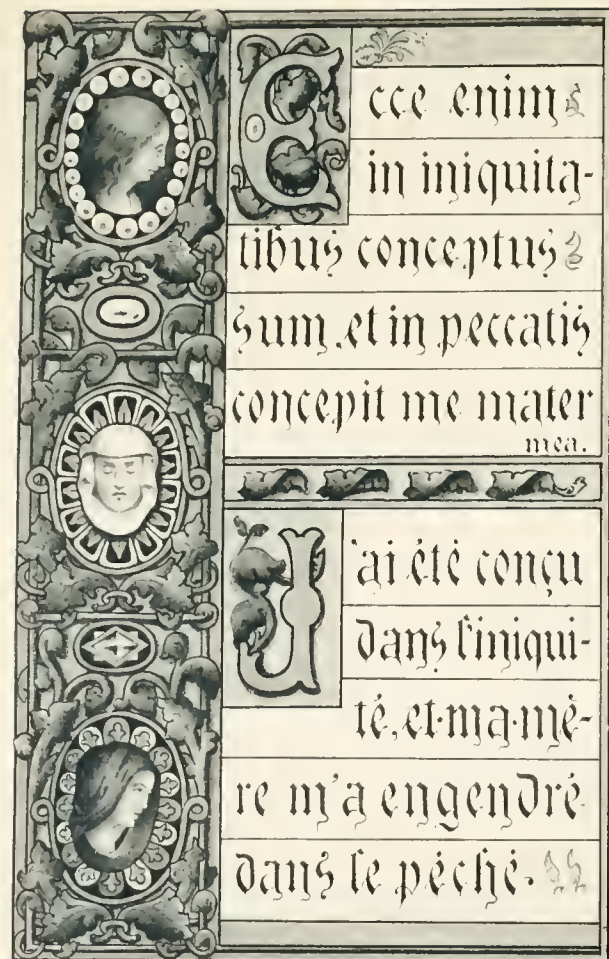 Ecce enim
in iniquita-
tibus conceptus
sum, et in peccatis
concepit me mater
mea.
J'ai été conçu
dans l'iniqui-
té, et ma mè-
re m'a engendré
dans le péché.